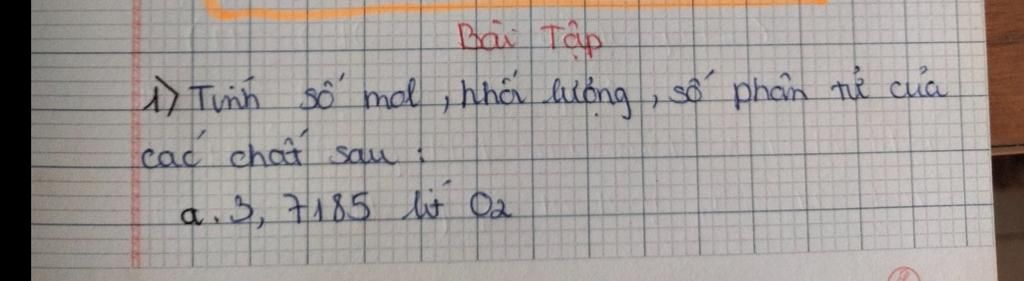 Bài Tập
1) Tính số mol, khối lượng, số phân tử của
các chất sau :
a. 3,7185 lít O2